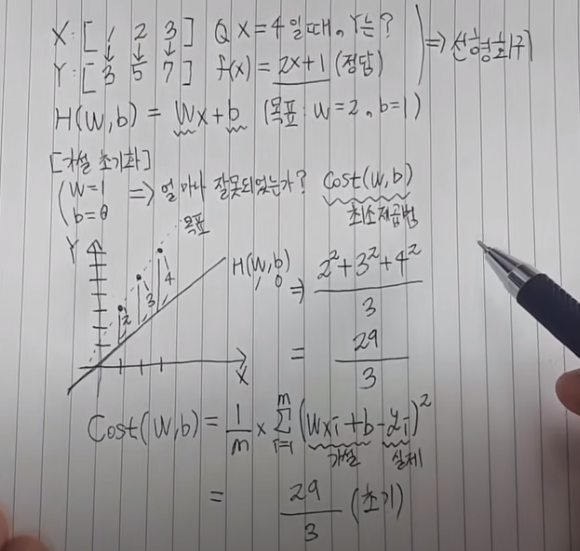 X: [ 1 2 3 ] Q X=4 일때, Y는?
Y: [ 3 5 7 ] f(x) = 2x+1 (정답)
⇒ 선형회귀
H(W,b) = Wx+b (목표: W=2, b=1)
[가설 초기화]
(W=1
b=0
⇒ 얼마나 잘못되었는가? Cost(W,b)
최소제곱법
목표
Y
2 3 4
H(W,b)
1 0
X
⇒ 2²+3²+4² / 3
= 29 / 3
Cost(W,b) = 1/m × Σ_{i=1}^{m} (Wxi+b-yi)²
가설 실제
= 29/3 (초기)